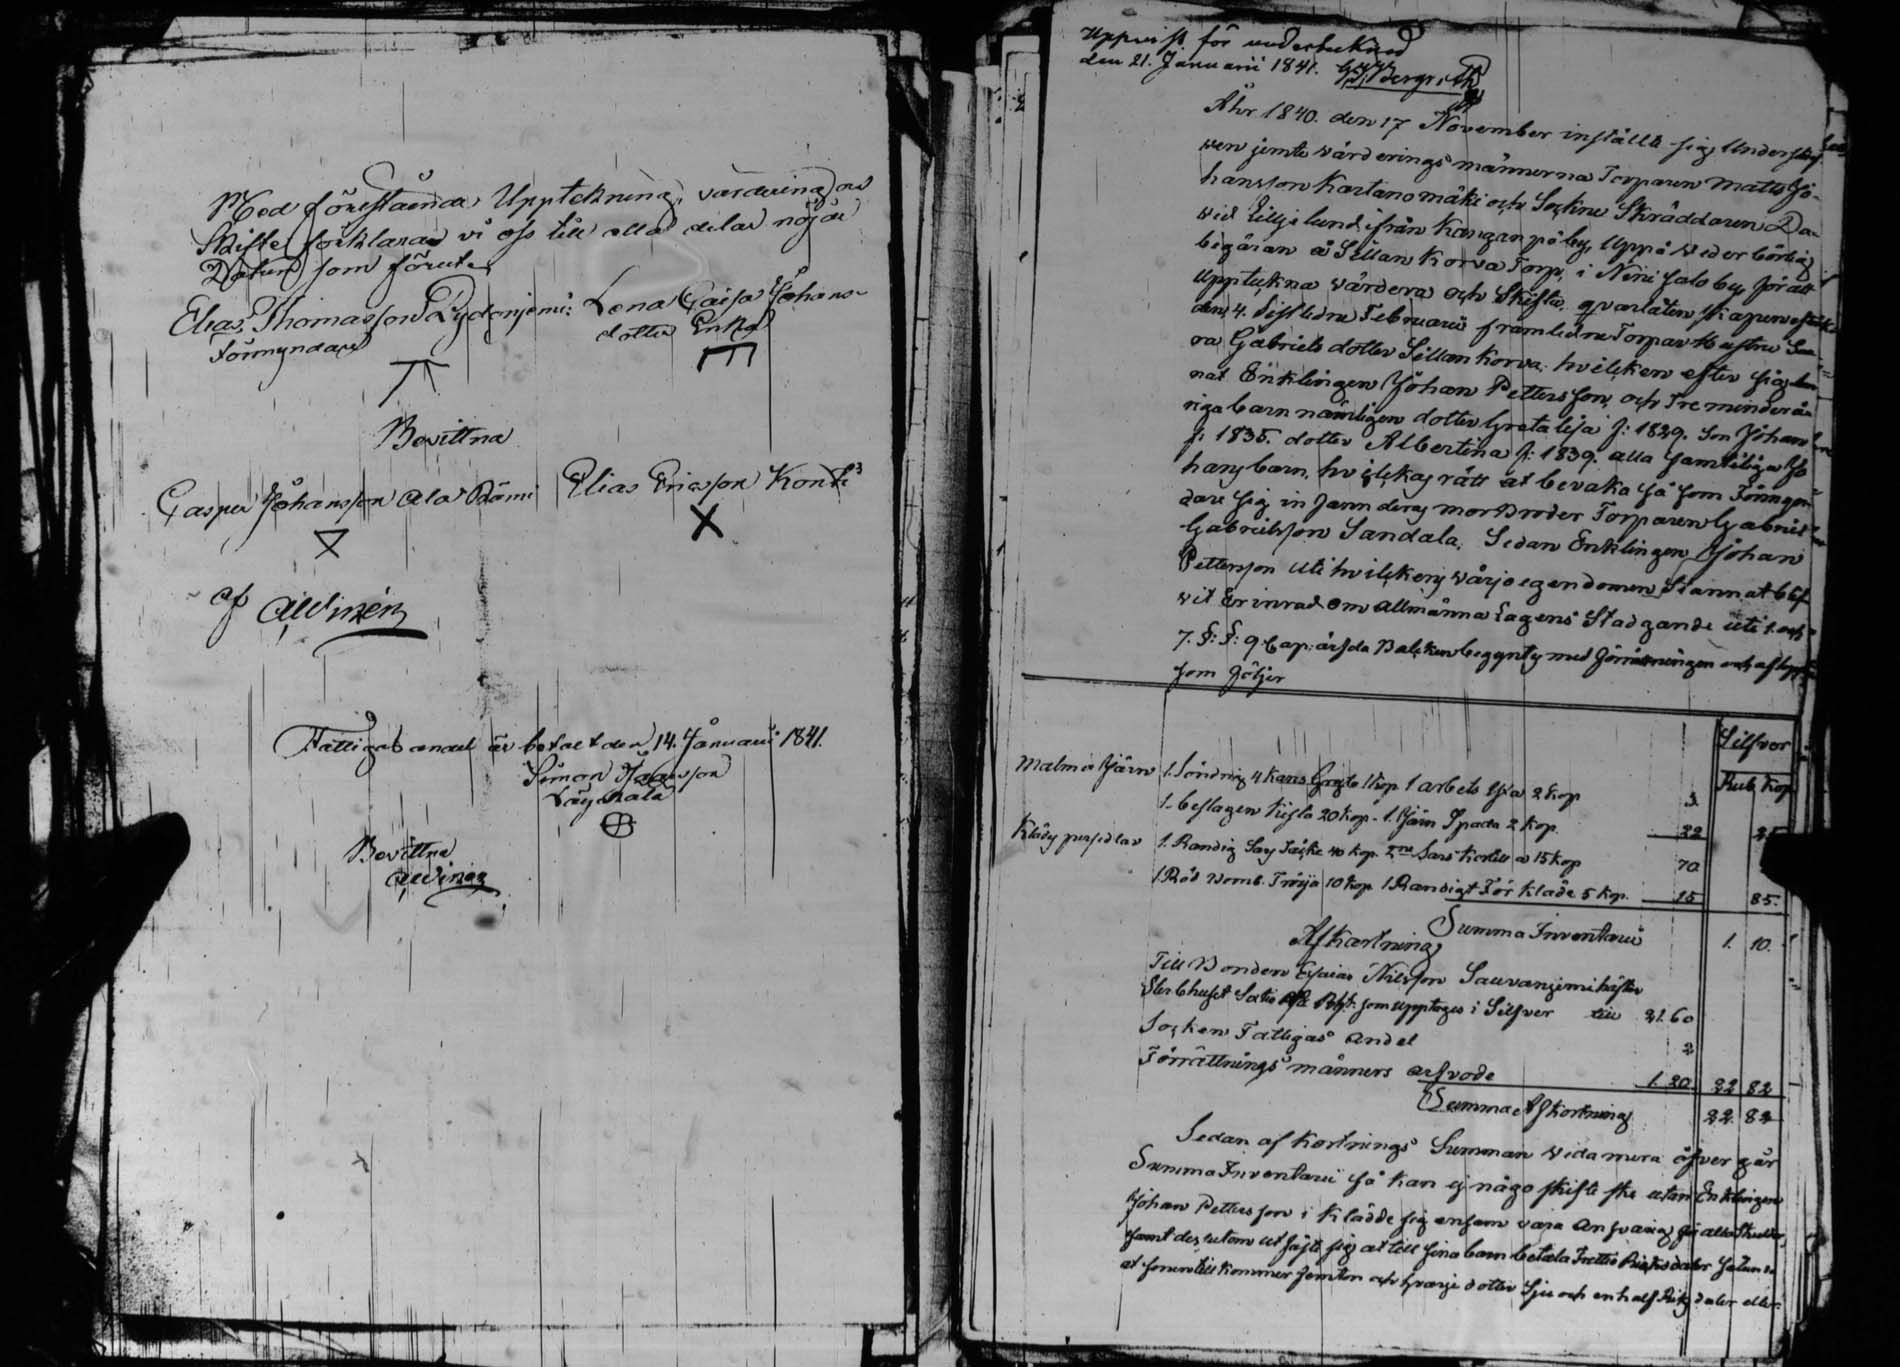 Med förestående Uppteckning, värdering och
Skifte förklarar vi oss till alla delar nöjde
Datum som förut.
Elias Thomasson Pydönjemi: Lena Caisa Johans-
Förmyndare dotter Enka
Bevittna
Casper Johansson Ala Rämi Elias Ericsson Kontti
X
af AWinén
Fattigas andel är betalt den 14. Januarii 1841.
Simon
Bevittna
AWinén
Uppvist för undertecknad
den 21. Januarii 1841.
Åhr 1840. den 17 November inställte sig Underskrif
ven jemte värderings männerna Torparen Matts Jo-
hansson Kartanomäki och Sockne Skräddaren Da-
vid Liljelund ifrån Kanganpä by, Uppå vederbörlig
begäran å Sillan Korva Torp, i Niini salo by, för att
Uppteckna värdera och Skifta qvarlåtenskapen efter
den 4. Sistledne Februarii framledne Torpar Hustru Sa-
ra Gabriels dotter Sillankorva, hvilcken efter sig lem
nat Enklingen Johan Pettersson, och Tre minderå
riga barn nämligen dotter Greta Lisa f: 1829. Son Johan
f: 1835. dotter Albertina f: 1839. alla samteliga Jo
hans barn, hvilckas rätt at bevaka så som Förmyn
dare sig infann deras morbroder Torparen Gabriel
Gabrielsson Sandala, Sedan Enklingen Johan
Pettersson uti hvilckens värjo egendomen Stannat blef
vit Erinrad om Allmänna Lagens Stadgande uti 1. och
7. §: §: 9. Cap: ärfda Balcken begynts med förrättningen och aflopp
som följer
Silfver
Rub. Kop.
Malm o Järn 1. Söndrig 4 Kans Gryta 1 kop 1 arbets Yxa 2 kop 3.
1. beslagen Kista 20 kop. 1. Järn Spada 2 kop. 22 25
Klädes persedlar 1. Randig 40 kop. 2ne Sars Kortill a 15 kop 70
1. Röd Tröija 10 kop 1 Randigt Förkläde 5 kop. 15 85.
Summa Inventarii 1. 10.
Afkortning
Till Bonden Esaias Nilsson Sauvanjemi häfter
Sterbhuset som upptages i Silfver till 21. 60
Socken Fattigas Andel 2
Förrättnings männers arfvode 1. 20. 22 82
Summa Afkortning 22 82
Sedan afkortnings Summan vida mera öfver går
Summa Inventarii så kan ej någo skifte ske utan Enklingen
Johan Pettersson iklädde sig ensam vara Ansvarig för alla Skulder,
samt dessutom utfäste sig at till sina barn betala Trettio Riksdaler
at sonen tillkommer femton och hvarje dotter Sju och en half Riksdaler eller